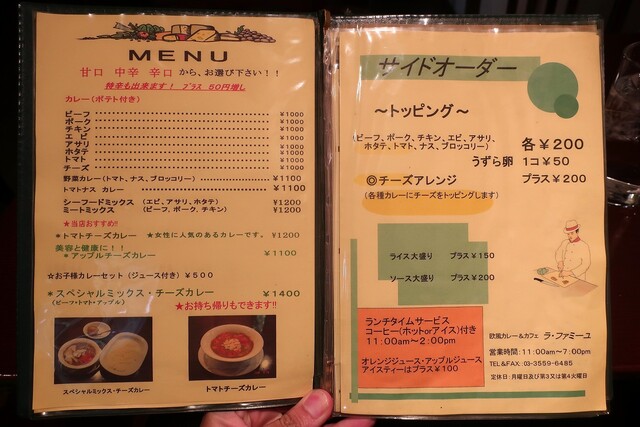 MENU
甘口 中辛 辛口 から、お選び下さい!!
特辛も出来ます! プラス 50円増し
カレー(ポテト付き)
ビーフ ¥1000
ポーク ¥1000
チキン ¥1000
エビ ¥1000
アサリ ¥1000
ホタテ ¥1000
トマト ¥1000
チーズ ¥1000
野菜カレー(トマト、ナス、ブロッコリー) ¥1100
トマトナス カレー ¥1100
シーフードミックス (エビ、アサリ、ホタテ) ¥1200
ミートミックス (ビーフ、ポーク、チキン) ¥1200
★当店おすすめ!!
*トマトチーズカレー ★女性に人気のあるカレーです。 ¥1200
美容と健康に!!
*アップルチーズカレー ¥1100
☆お子様カレーセット(ジュース付き)¥500
*スペシャルミックス・チーズカレー ¥1400
(ビーフ・トマト・アップル)
★お持ち帰りもできます!!
スペシャルミックス・チーズカレー
トマトチーズカレー
サイドオーダー
~トッピング~
(ビーフ、ポーク、チキン、エビ、アサリ、
ホタテ、トマト、ナス、ブロッコリー) 各¥200
うずら卵 1コ¥50
◎チーズアレンジ プラス¥200
(各種カレーにチーズをトッピングします)
ライス大盛り プラス¥150
ソース大盛り プラス¥200
ランチタイムサービス
コーヒー(ホットorアイス)付き
11:00am~2:00pm
オレンジジュース・アップルジュース
アイスティーはプラス¥100
欧風カレー&カフェ ラ・ファミーユ
営業時間:11:00am~7:00pm
TEL&FAX: 03-3559-6485
定休日:月曜日及び第3又は第4火曜日